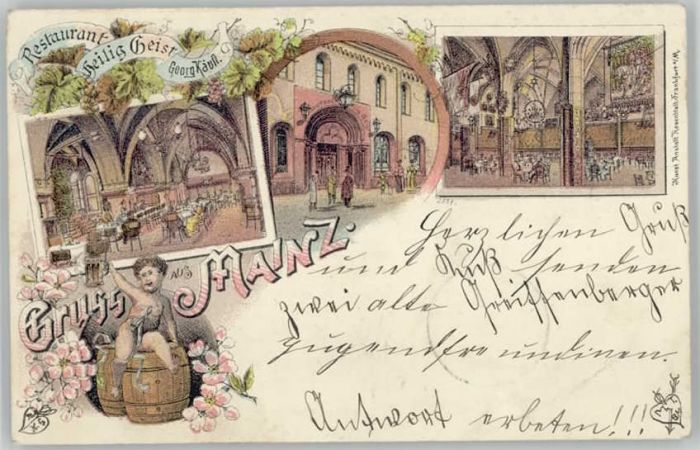 Restaurant
Heilig Geist
Georg Käuffl.
Kunst Anstalt Rosenblatt, Frankfurt a/M.
Gruss
AUS
MAINZ.
Herzlichen Gruß
und Kuß senden
zwei alte Greiffenberger
Jugendfreundinen.
Antwort erbeten!!!